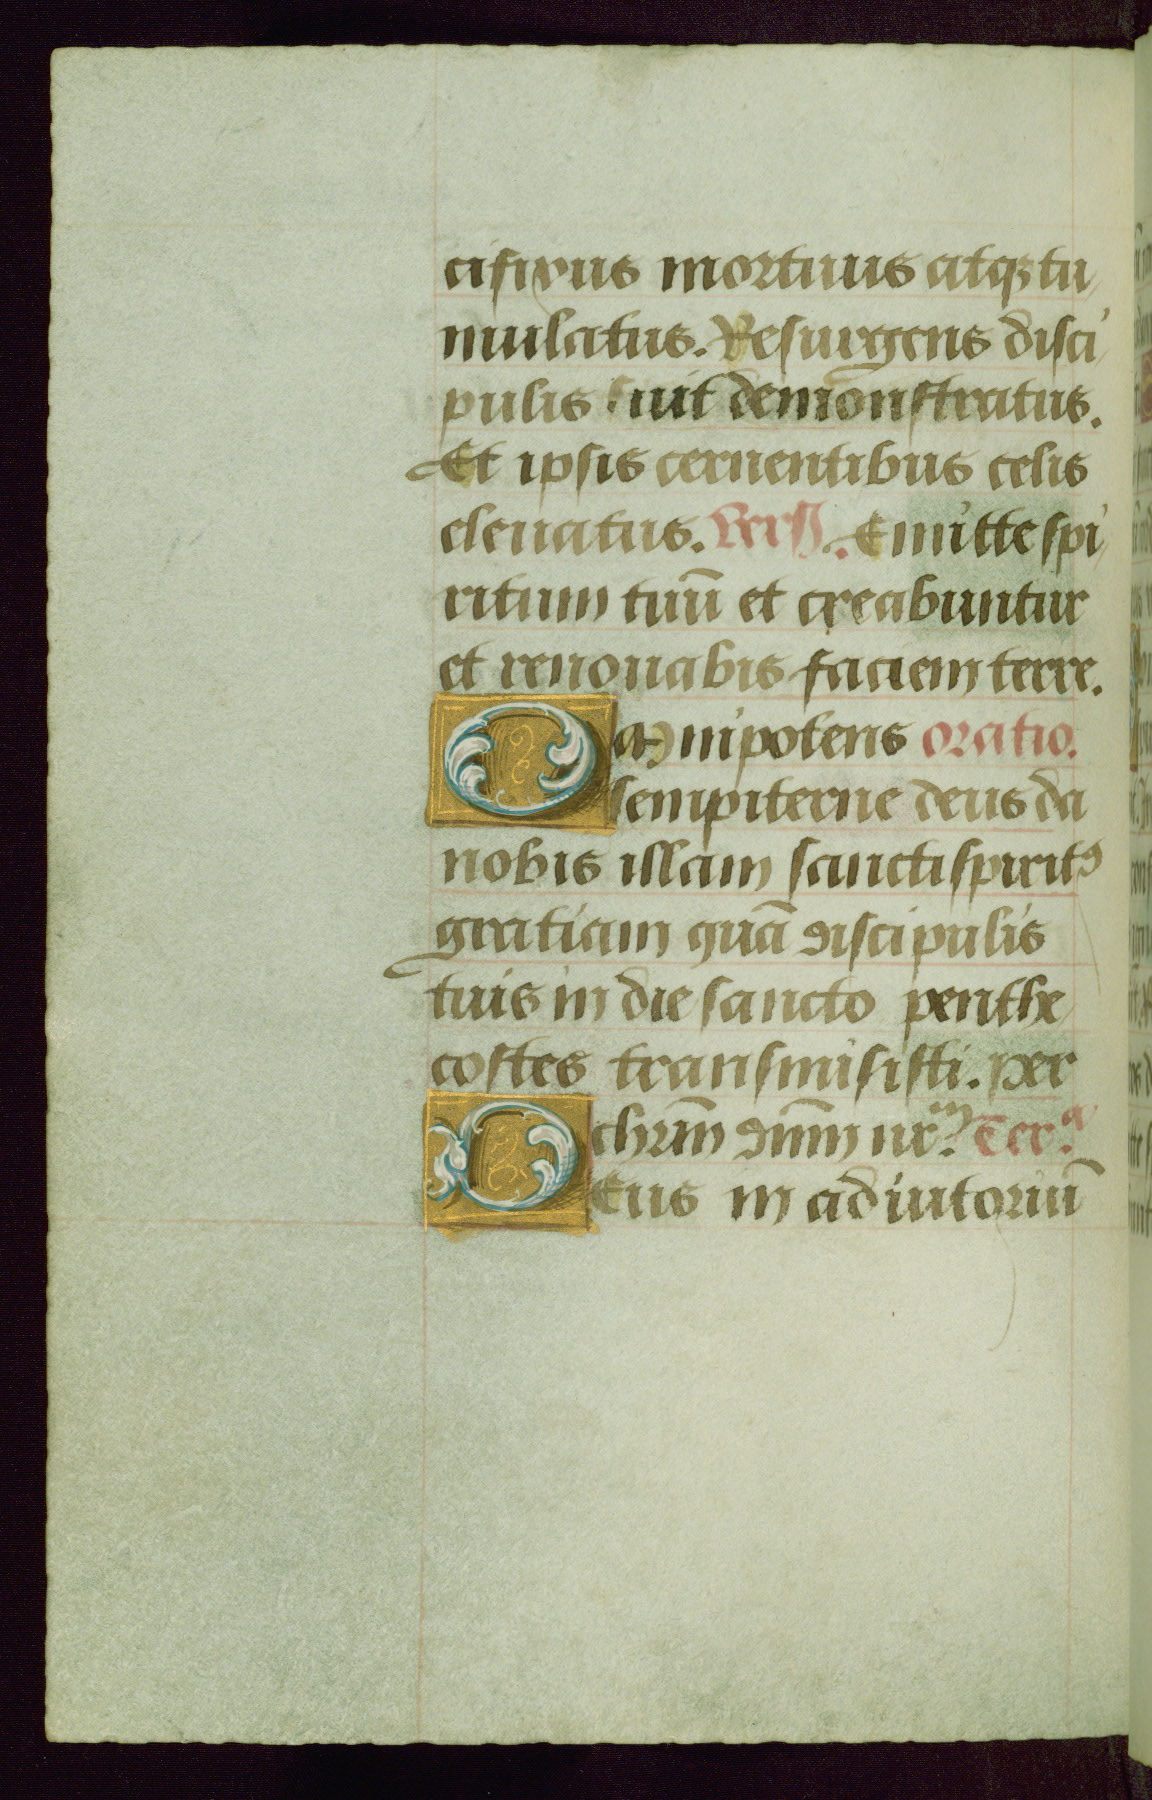 cifixus mortuus atqꝫ tu
mulatus. Resurgens disci
pulis fuit demōnstratus.
Et ipsis cernentibus celis
eleuatus. Vers̄. Emitte spi
ritum tuū et creabuntur
et renouabis faciem terre.
Omnipotens oratio.
sempiterne deus da
nobis illam sancti spiritꝰ
gratiam quā discipulis
tuis in die sancto penthe
costes transmisisti. Per
chr̄m dn̄m nr̄m. Terᵃ.
DEus in adiutoriū